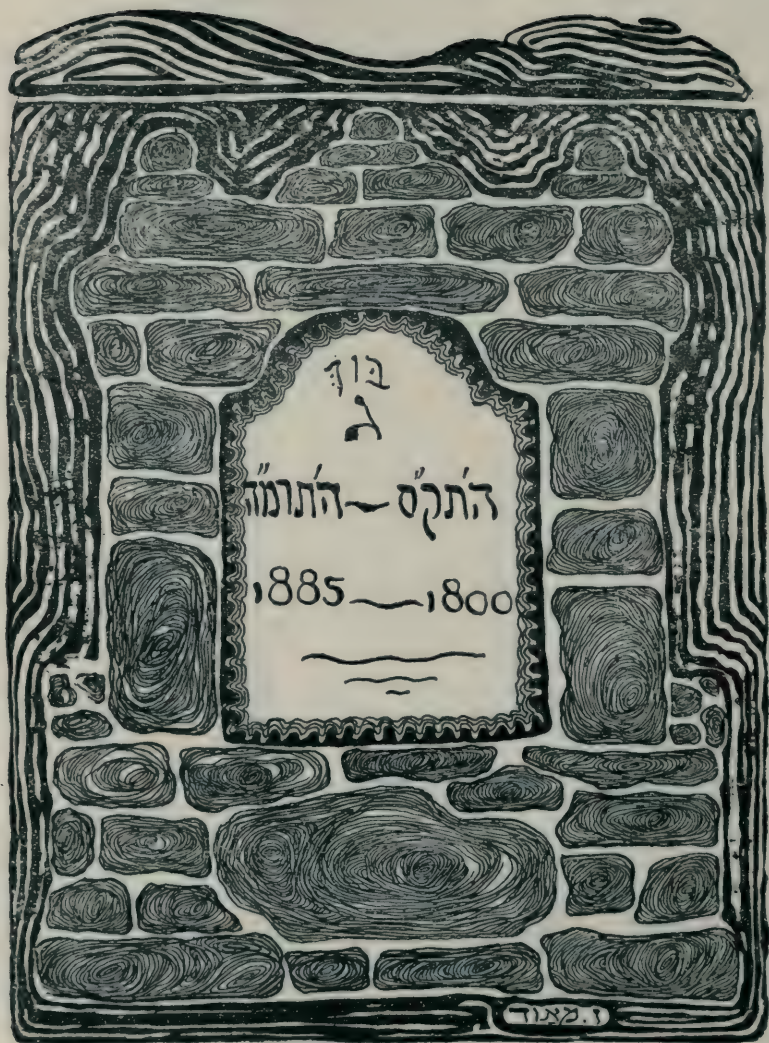 בוך
ג
ה'תק"ס — ה'תרמ"ה
1800 — 1885
ז. מאוד